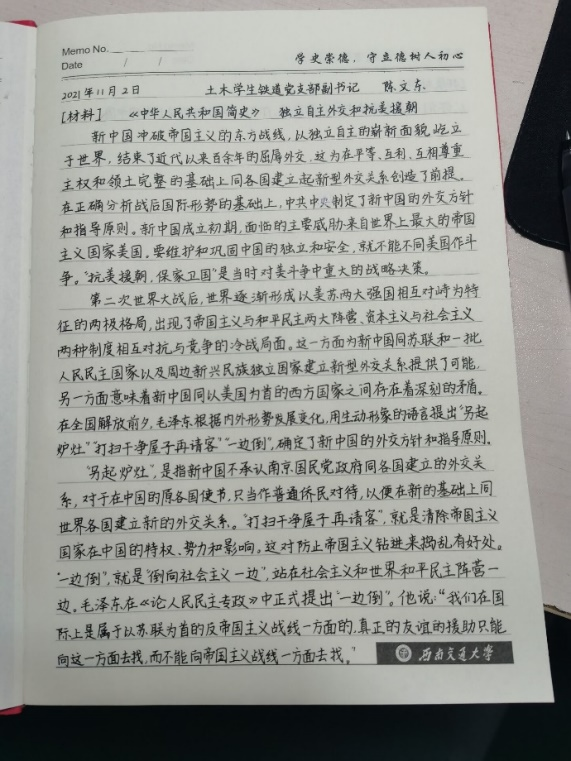 Memo No.
Date / /
学史崇德，守立德树人初心
2021年11月2日 土木学生铁道党支部副书记 陈文东
[材料] 《中华人民共和国简史》 独立自主外交和抗美援朝
新中国冲破帝国主义的东方战线，以独立自主的崭新面貌屹立
于世界，结束了近代以来百余年的屈辱外交，这为在平等、互利、互相尊重
主权和领土完整的基础上同各国建立起新型外交关系创造了前提。
在正确分析战后国际形势的基础上，中共中央制定了新中国的外交方针
和指导原则。新中国成立初期，面临的主要威胁来自世界上最大的帝国
主义国家美国。要维护和巩固中国的独立和安全，就不能不同美国作斗
争。"抗美援朝，保家卫国"是当时对美斗争中重大的战略决策。
第二次世界大战后，世界逐渐形成以美苏两大强国相互对峙为特
征的两极格局，出现了帝国主义与和平民主两大阵营、资本主义与社会主义
两种制度相互对抗与竞争的冷战局面。这一方面为新中国同苏联和一批
人民民主国家以及周边新兴民族独立国家建立新型外交关系提供了可能，
另一方面意味着新中国同以美国为首的西方国家之间存在着深刻的矛盾。
在全国解放前夕，毛泽东根据内外形势发展变化，用生动形象的语言提出"另起
炉灶""打扫干净屋子再请客""一边倒"，确定了新中国的外交方针和指导原则。
"另起炉灶"，是指新中国不承认南京国民党政府同各国建立的外交关
系，对于在中国的原各国使节，只当作普通侨民对待，以便在新的基础上同
世界各国建立新的外交关系。"打扫干净屋子再请客"，就是清除帝国主义
国家在中国的特权、势力和影响。这对防止帝国主义钻进来捣乱有好处。
"一边倒"，就是"倒向社会主义一边"，站在社会主义和世界和平民主阵营一
边。毛泽东在《论人民民主专政》中正式提出"一边倒"。他说："我们在国
际上是属于以苏联为首的反帝国主义战线一方面的，真正的友谊的援助只能
向这一方面去找，而不能向帝国主义战线一方面去找。"
西南交通大学